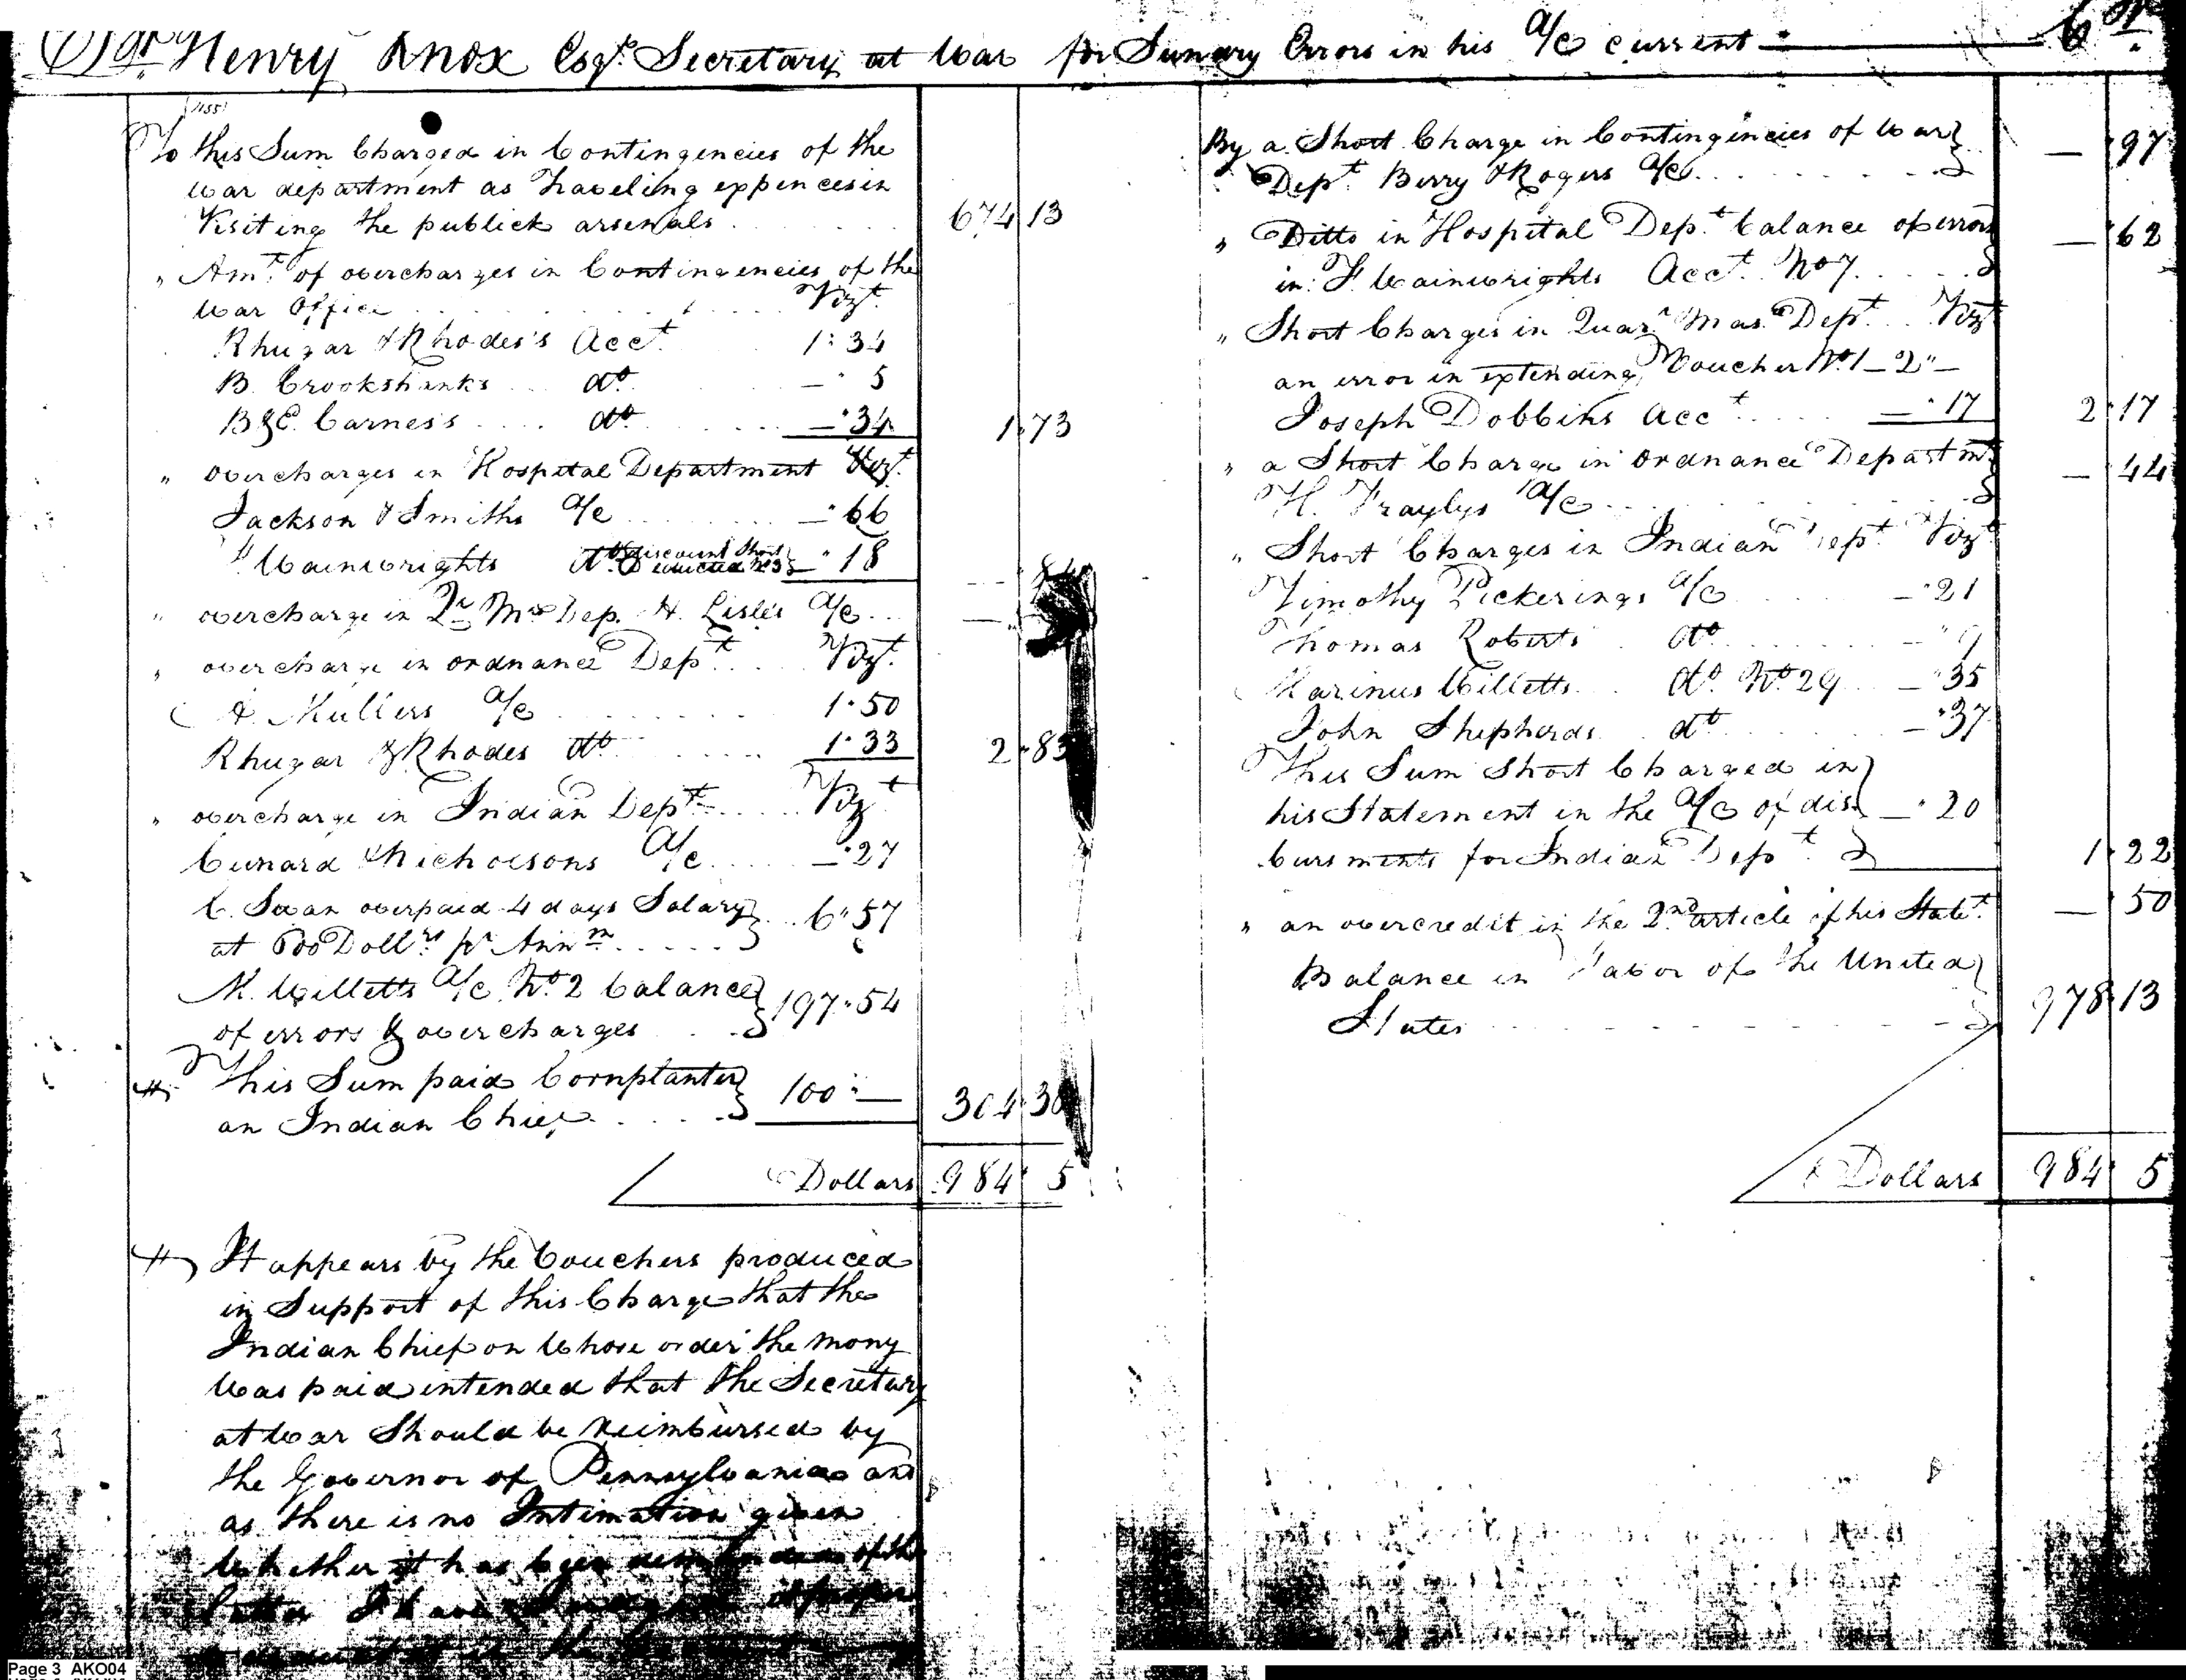 Dr. Henry Knox Esqr. Secretary at War for Sundry Errors in his a/c current Cr.
To this Sum Charged in Contingencies of the
War department as traveling expences in
Visiting the publick arsenals 674 13
" Amt. of overcharges in Contingencies of the
War Office Vizt.
Rhuzar & Rhodes's Acct 1:34
B. Crookshanks do. — " 5
B & E. Carness do — " 34 1 " 73
" overcharges in Hospital Department Vizt.
Jackson & Smiths a/c — " 66
Wainwrights do. discount short deducted No 3 — " 18 — 84
" overcharge in Qr. Mrs Dep. H. Lisles a/c — "
" overcharge in ordnance Dept. Vizt.
A. Mullers a/c 1 " 50
Rhuzar & Rhodes do 1 " 33 2 " 83
" overcharge in Indian Dept. Vizt
Cunard & Nicholsons a/c — " 27
C. Swan overpaid 4 days Salary
at 600 Dollrs pr Annm 6 " 57
M. Willetts a/c No. 2 balance
of errors & overcharges 197 " 54
This Sum paid Cornplanter
an Indian Chief 100 " — 304 " 38
Dollars 984 " 5
It appears by the Vouchers produced
in Support of this Charge that the
Indian Chief on whose order the mony
was paid intended that the Secretary
at War Should be Reimbursed by
the Governor of Pennsylvania and
as there is no Intimation given
Whether it has been of the
latter I have
deduct it
By a Short Charge in Contingencies of War
Dept. Berry & Rogers a/c — " 97
" Ditto in Hospital Dept. balance of errors
in F. Wainwrights Acct. No 7 — " 62
" Short Charges in Quarr. Mas. Dept. Vizt
an error in extending Voucher No. 1 — 2 " —
Joseph Dobbins Acct — " 17 2 " 17
" a Short Charge in Ordnance Departmt
H. Fraylys a/c — " 44
" Short Charges in Indian Dept. Vizt
Timothy Pickerings a/c — " 21
Thomas Roberts do — " 9
Marinus Willetts do. No. 29 — " 35
John Shepherds do — " 37
This Sum short Charged in
his Statement in the a/c of dis
bursments for Indian Dept. — " 20 1 " 22
" an overcredit in the 2nd article of his Statet. — " 50
Balance in Favor of the United
States 978 " 13
Dollars 984 " 5
Page 3 AKO04